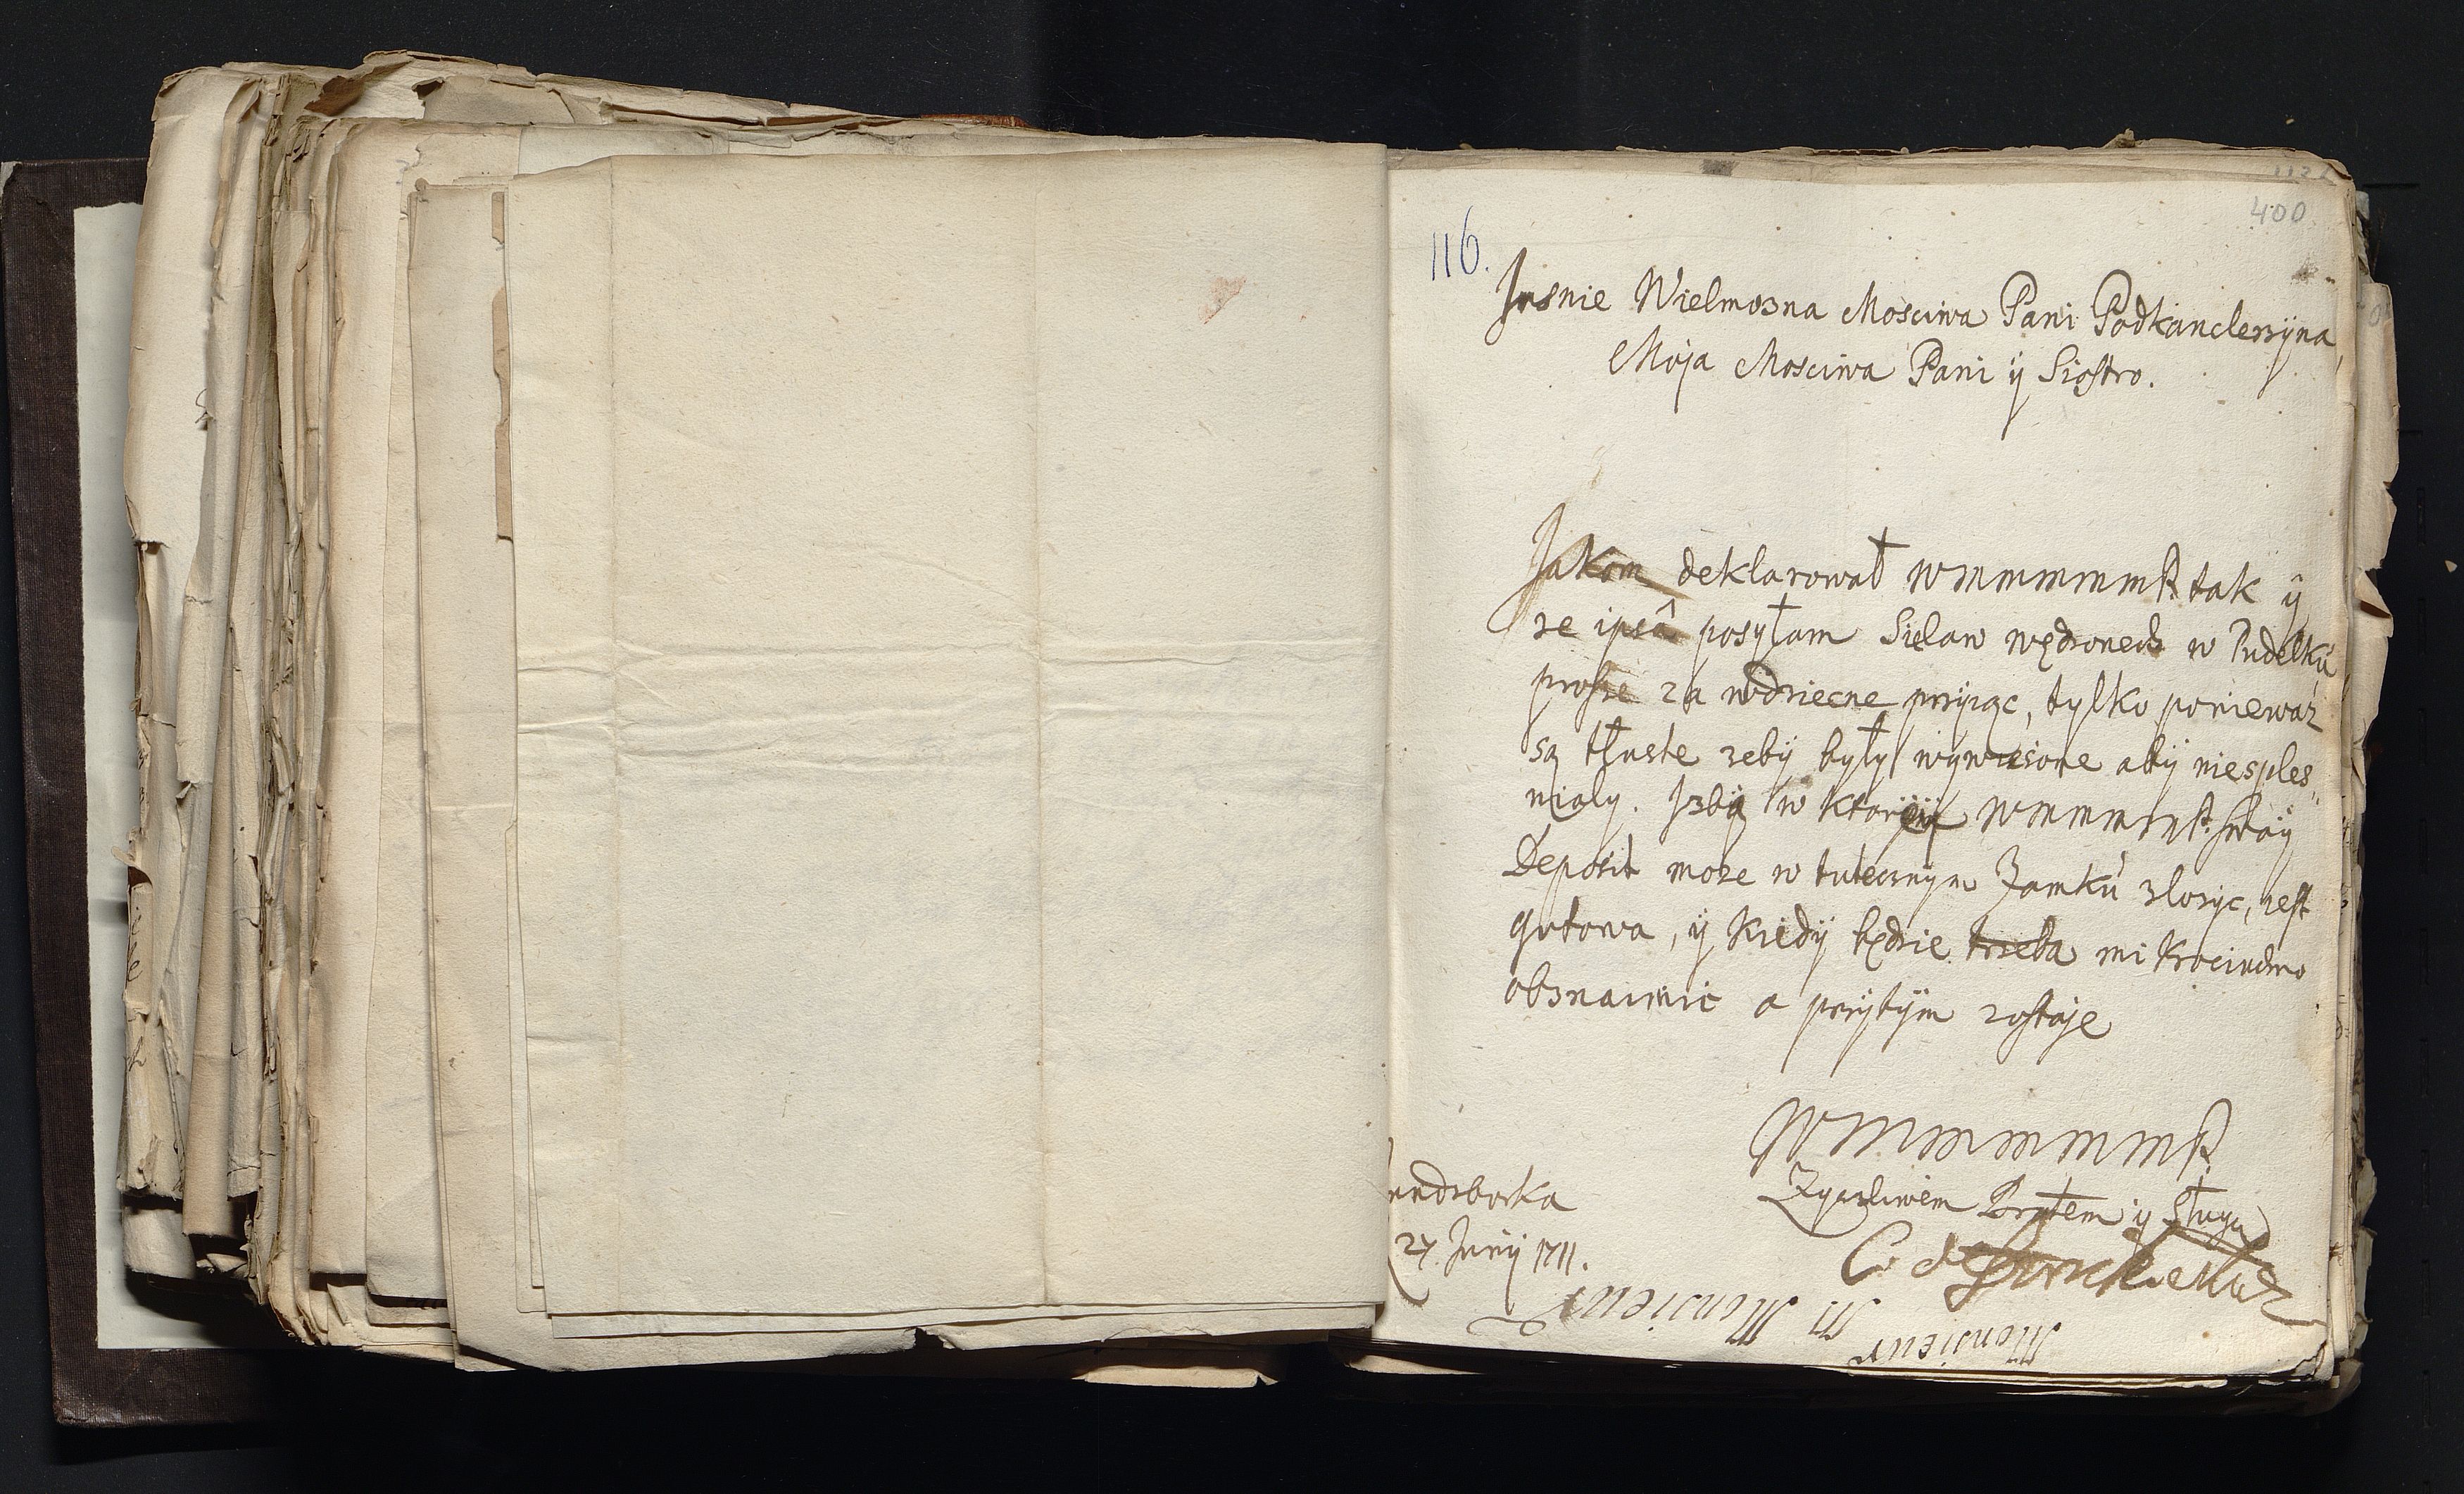 400
116.
Jasnie Wielmozna Mosciwa Pani Podkanclerzÿna,
Moja Mosciwa Pani ÿ Siostro.
Jakom deklarował WMMMMMP. tak ÿ
re ipsâ posyłam Sielaw wędzonech w Pudelkú
prosze za wdzięcne przyiąc, tylko poniewaz
są tłuste zebÿ były wywiesone abÿ niesples„
nialy. Jzba w ktorÿ WMMMMP. swoÿ
Deposit moze w tutecznym Zamkú zlozyc, iest
gotowa, ÿ kiedÿ będzie trzeba mi krociudmo
obznaimic a przÿtÿm zostaje
WMMMMMP.
Zyczliwem Bratem ÿ Sługą
C. de
27. Junÿ 1711.
Monsieur
M Monsieur